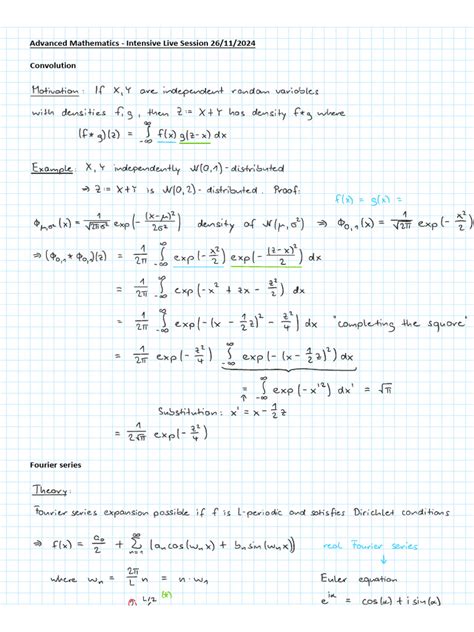 Advanced Mathematics - Intensive Live Session 26/11/2024
Convolution
Motivation: If X,Y are independent random variables
with densities f,g, then Z := X+Y has density f*g where
(f*g)(z) = ∫_{-∞}^{∞} f(x) g(z-x) dx
Example: X,Y independently N(0,1)-distributed
⇒ Z := X+Y is N(0,2)-distributed. Proof:
f(x) = g(x) =
ϕ_{μ,σ²}(x) = 1/√(2πσ²) exp(-(x-μ)²/2σ²) density of N(μ,σ²) ⇒ ϕ_{0,1}(x) = 1/√(2π) exp(-x²/2
⇒ (ϕ_{0,1} * ϕ_{0,1})(z) = 1/2π ∫_{-∞}^{∞} exp(-x²/2) exp(-(z-x)²/2) dx
= 1/2π ∫_{-∞}^{∞} exp(-x² + zx - z²/2) dx
= 1/2π ∫_{-∞}^{∞} exp(-(x - 1/2 z)² - z²/4) dx "completing the square"
= 1/2π exp(-z²/4) ∫_{-∞}^{∞} exp(-(x - 1/2 z)²) dx
= ∫_{-∞}^{∞} exp(-x'²) dx' = √π
↑
Substitution: x' = x - 1/2 z
= 1/(2√π) exp(-z²/4)
Fourier series
Theory:
Fourier series expansion possible if f is L-periodic and satisfies Dirichlet conditions
⇒ f(x) = a₀/2 + Σ_{n=1}^{∞} (aₙcos(ωₙx) + bₙsin(ωₙx)) real Fourier series
where ωₙ = 2π/L n = n·ω₁ Euler equation
L/2 (*) e^{iα} = cos(α) + i sin(α)